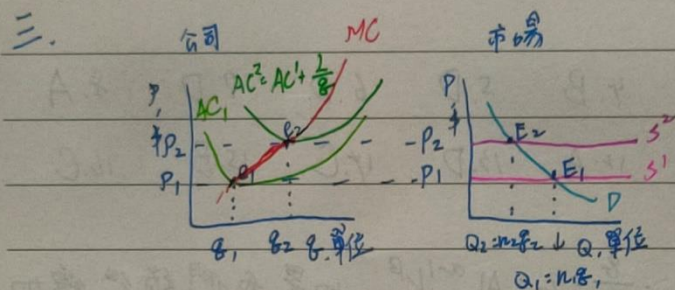 三.
公司
MC
市场
P,￥
AC₁
AC²=AC¹+L/q
P₂
P₁
e₂
e₁
q₁ q₂ q,单位
P,￥
P₂
P₁
E₂
E₁
S²
S¹
D
Q₂=n₂q₂ ↓ Q,单位
Q₁=n₁q₁